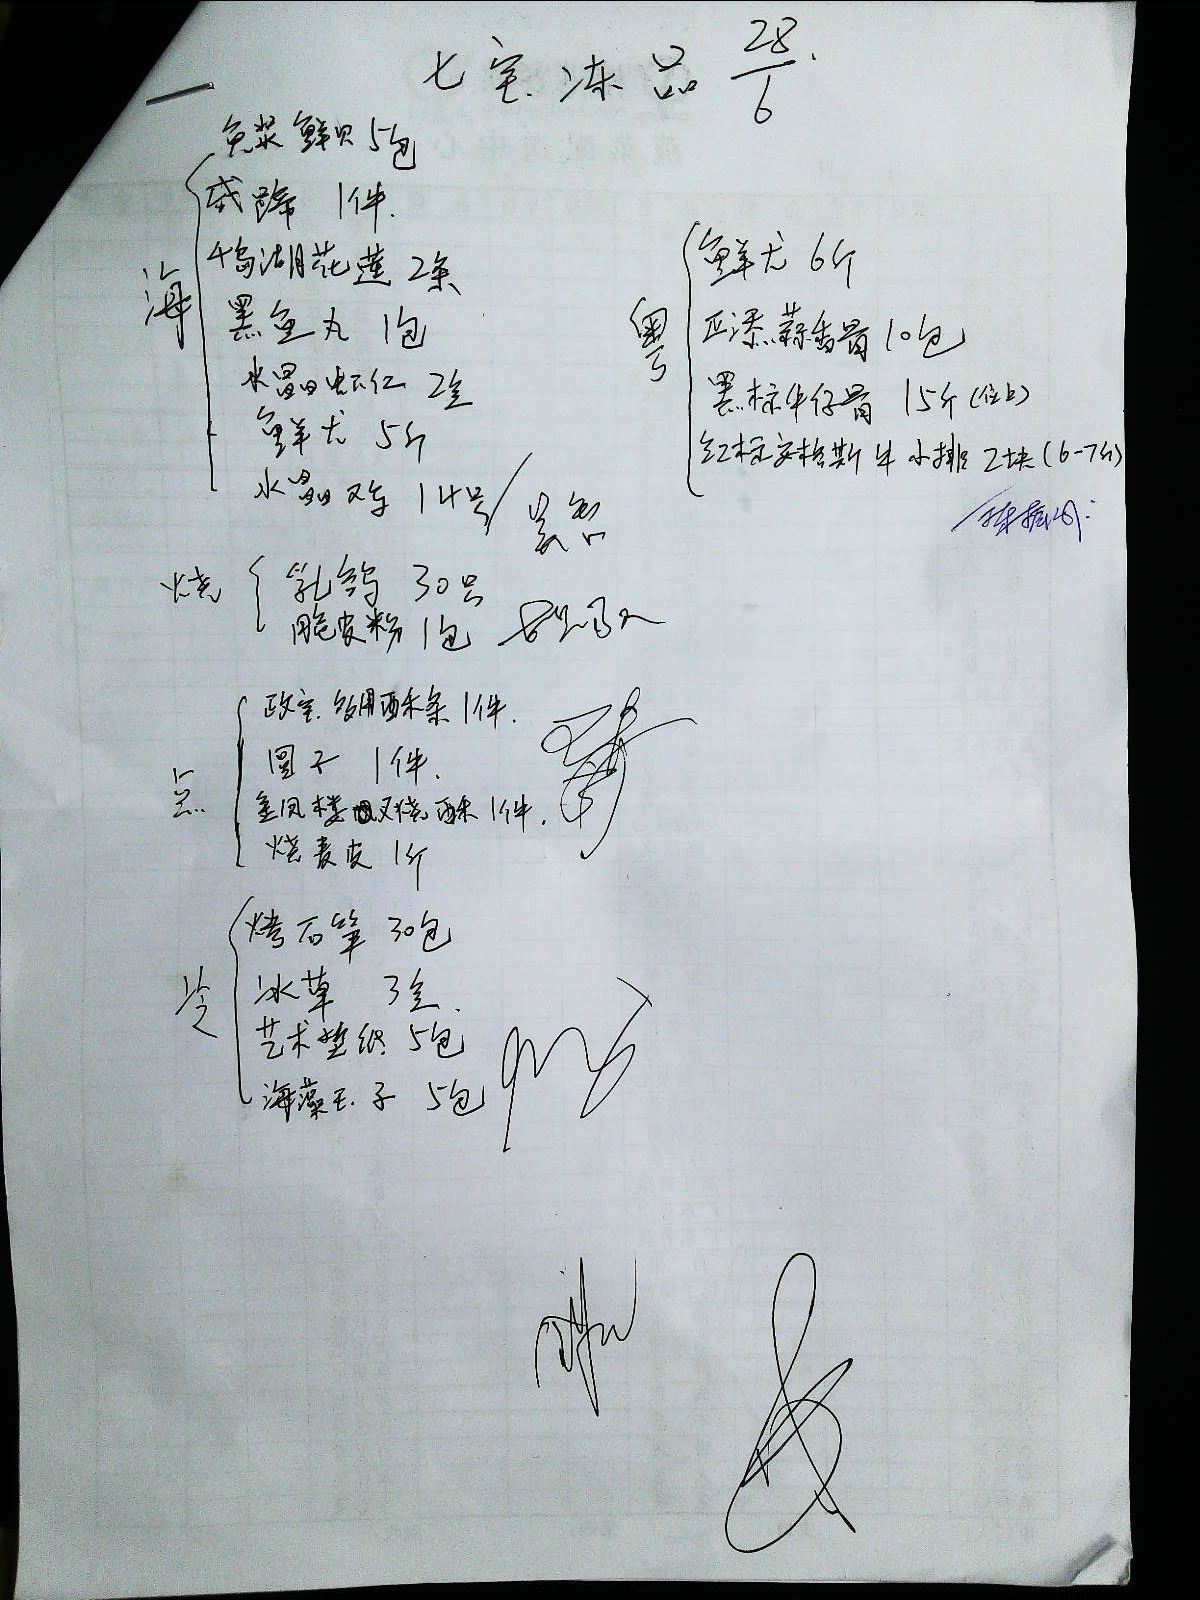 七宝冻品 28/6
鱼浆鲜贝 5包
海
蹄 1件.
千岛湖花莲 2条
黑鱼丸 1包
水晶虾仁 2盒
鲜尤 5斤
水晶 14号
粤
鲜尤 6斤
正添蒜香骨 10包
黑标牛仔骨 15斤(位上)
红标安格斯牛小排 2块(6-7斤)
烧
乳鸽 30只
脆皮粉 1包
点
政宝多用酥条 1件.
圆子 1件.
金凤楼叉烧酥 1件.
烧麦皮 1斤
冷
烤石笋 30包
冰草 3盒.
艺术垫纸 5包
海藻玉子 5包